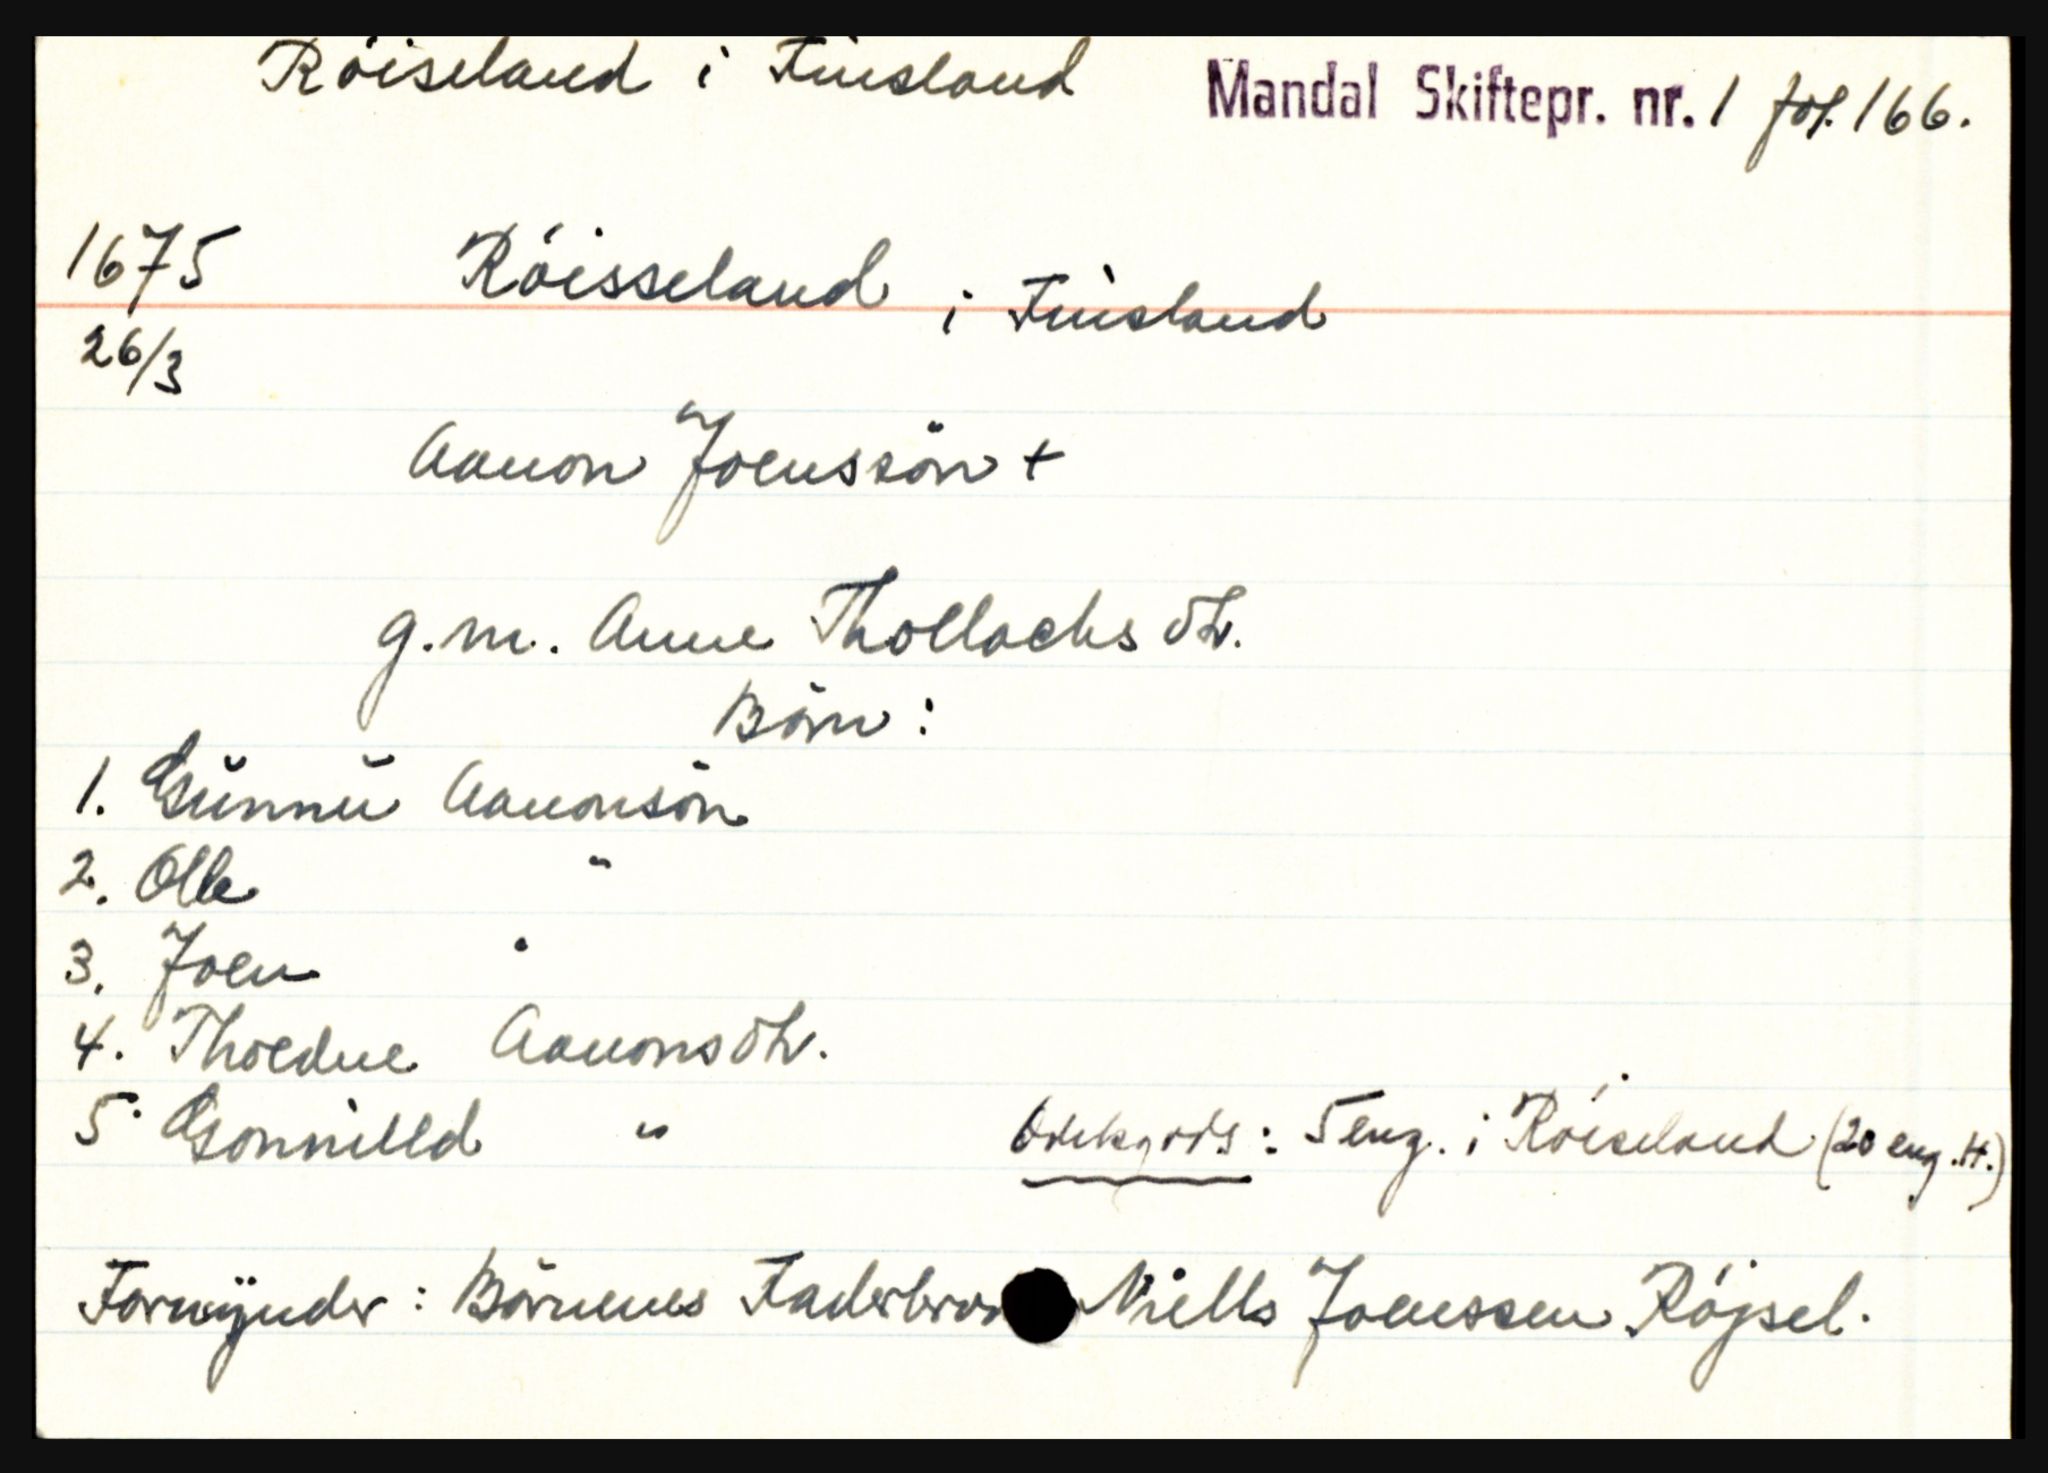 Röiseland i Finsland Mandal Skiftepr. nr. 1 fol. 166.
1675 Röisseland i Finsland
26/3
Aanon Joensson +
g.m. Anne Thollachs dtr.
Börn :
1. Gunnu Aanonsön
2. Olle "
3. Joen "
4. Thoedne Aanons dtr.
5. Gonnilld "
Odelsgods : 5 eng. i Röiseland (20 eng. H.)
Formynder : Börnenes Faderbror Niells Joenssen Röjsel.